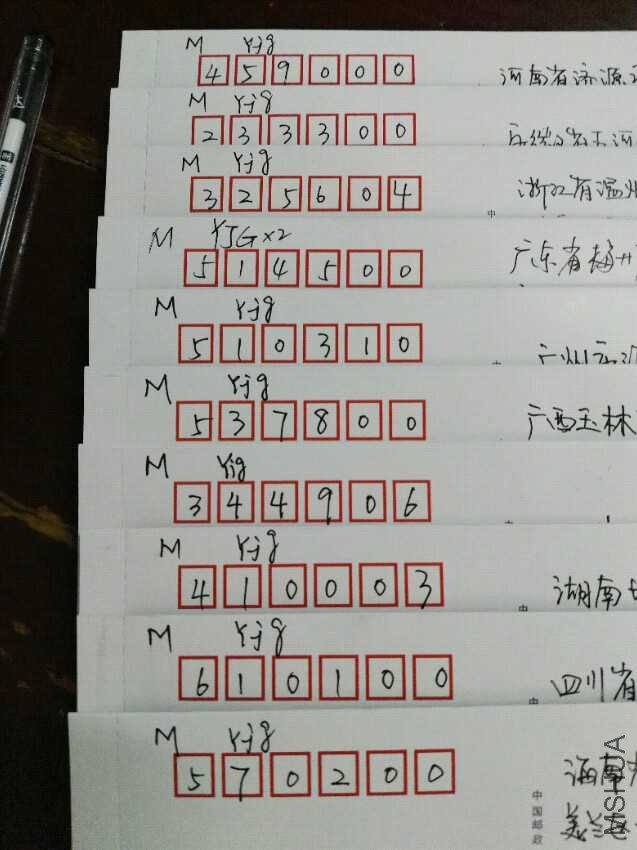 M Yjg
459000
河南省济源
M Yjg
233300
M Yjg
325604
浙江省温州
中
M YJG×2
514500
广东省梅州
M Yjg
510310
广州市
M Yjg
537800
广西玉林
M Yjg
344906
M Yjg
410003
湖南
中
M Yjg
610100
四川省
中
M Yjg
570200
海南
美兰
中国邮政